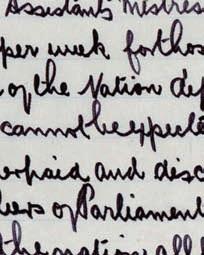 Assistants Mistress
per week for thos
of the Nation def
cannot be expecte
erpaid and disc
bers of Parliament
the nation all